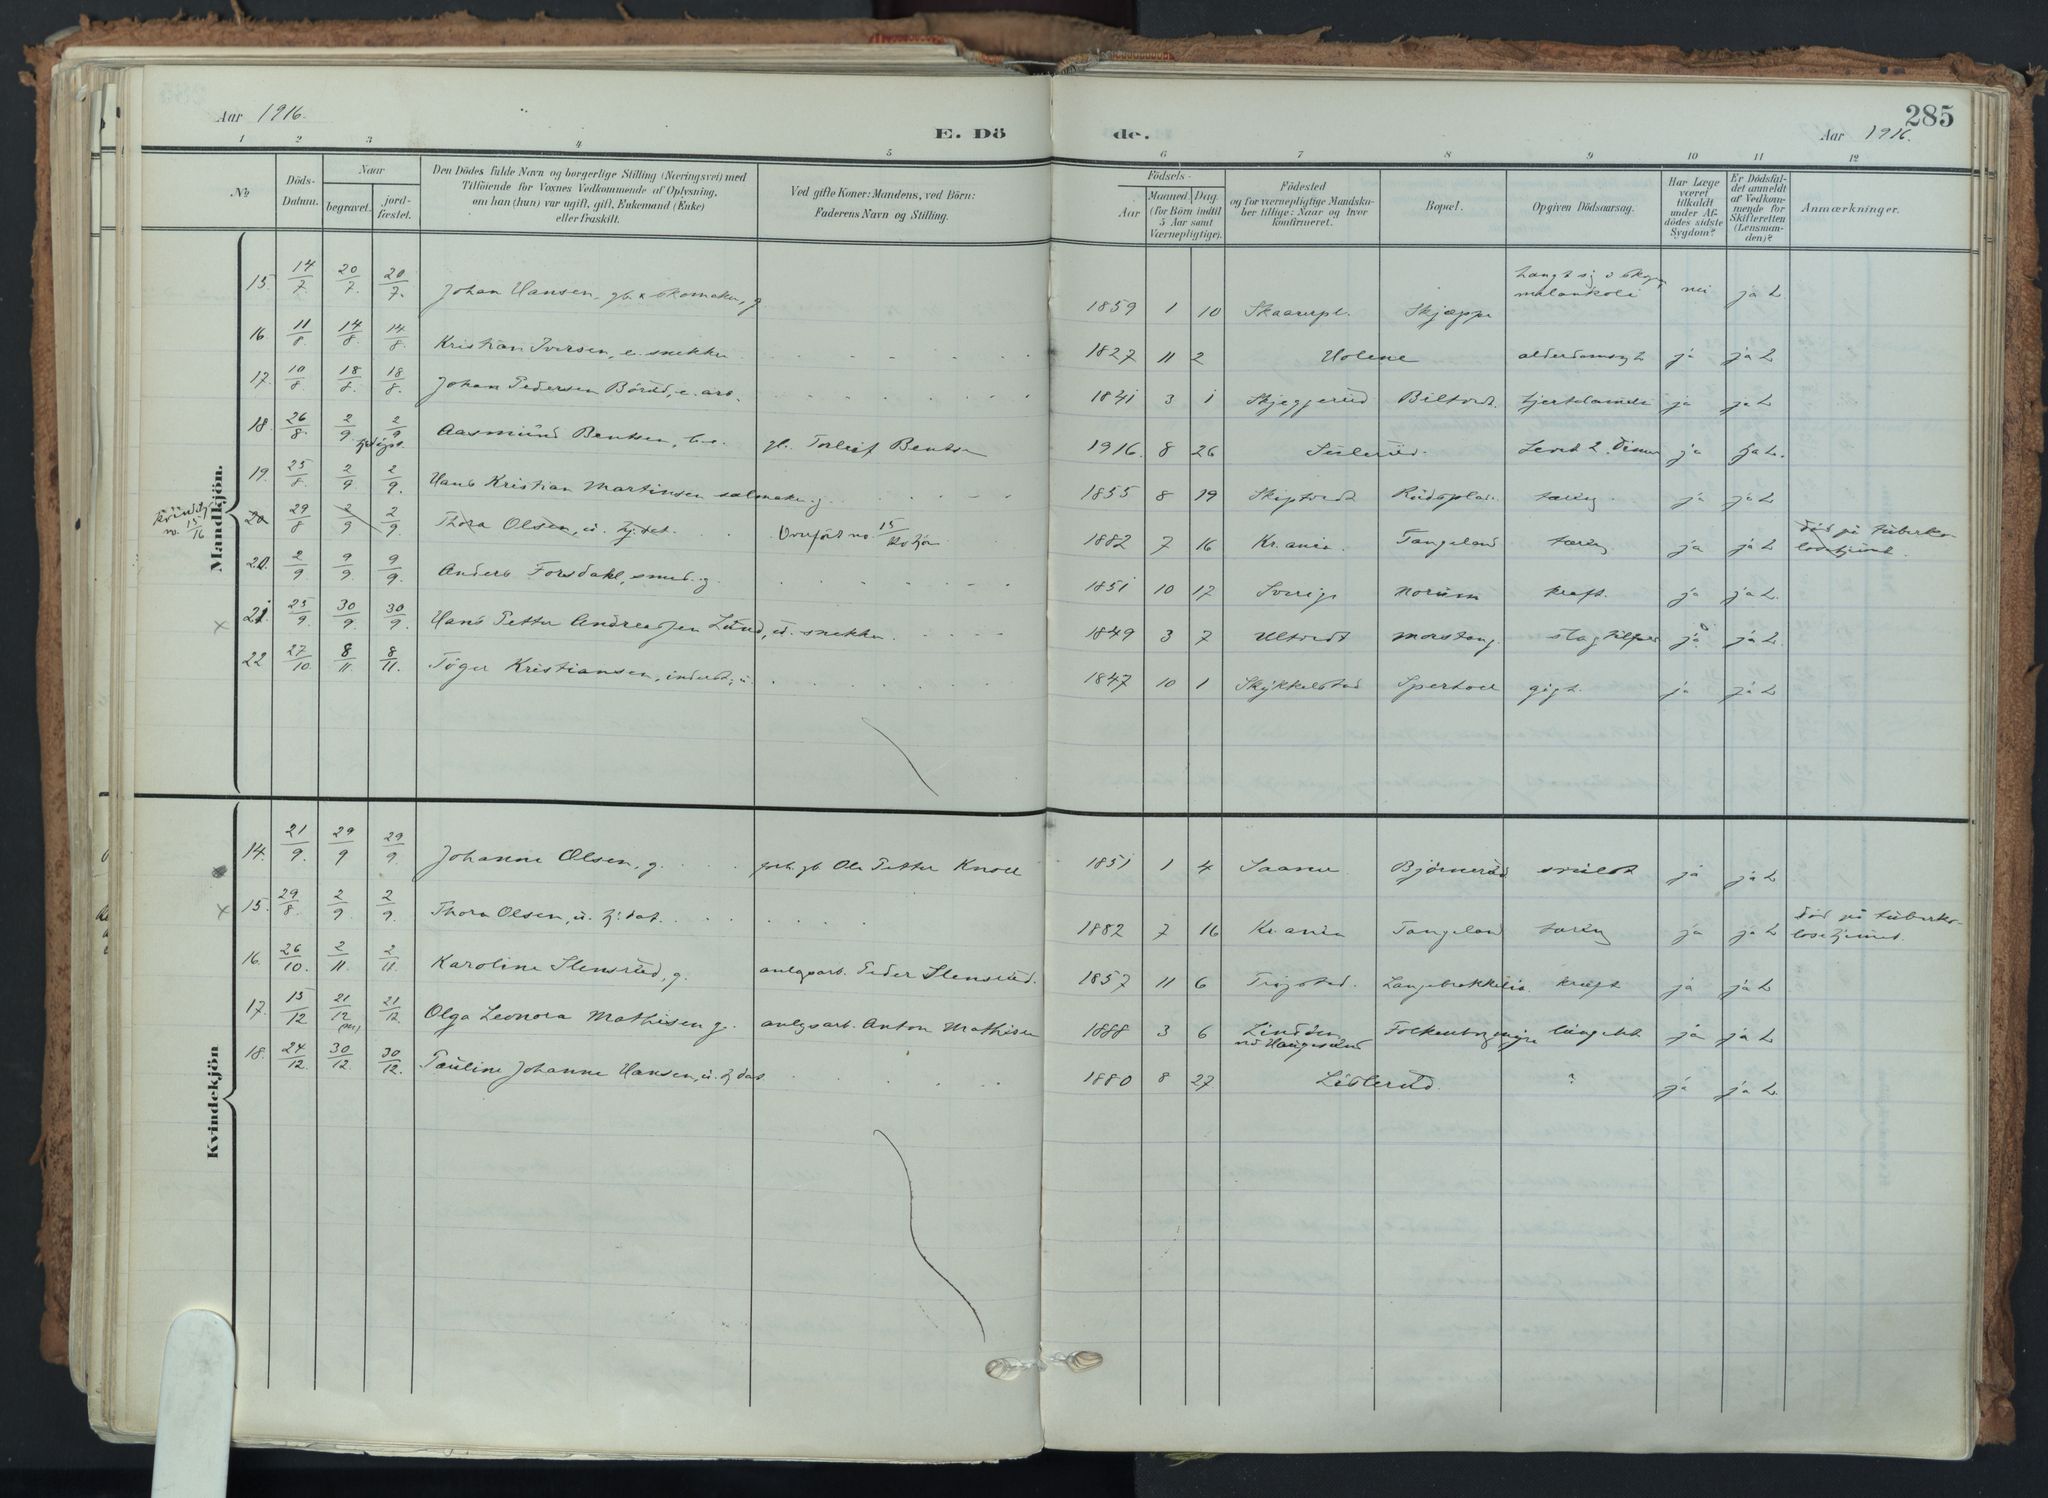 Aar 1916.
E. Dö
de.
285
Aar 1916.
1 2 3 4 5 6 7 8 9 10 11 12
No
Döds-
Datum.
Naar
begravet.
jord-
fæstet.
Den Dödes fulde Navn og borgerlige Stilling (Næringsvei) med
Tilföiende for Voxnes Vedkommende af Oplysning,
om han (hun) var ugift, gift, Enkemand (Enke)
eller fraskilt.
Ved gifte Koner: Mandens, ved Börn:
Faderens Navn og Stilling.
Födsels-
Aar
Maaned. Dag.
(for Börn indtil
5 Aar samt
Værnepligtige).
Födested
og for værnepligtige Mandska-
ber tillige: Naar og hvor
konfirmeret.
Bopæl.
Opgiven Dödsaarsag.
Har Læge
været
tilkaldt
under Af-
dödes sidste
Sygdom?
Er Dödsfal-
det anmeldt
af Vedkom-
mende for
Skifteretten
(Lensman-
den)?
Anmærkninger.
Mandkjön.
15. 14/7 20/7 20/7. Johan Hansen, gb. & skomaker, g. 1859 1 10 Skjæppe melankoli nei ja L
16. 11/8 14/8 14/8. Kristian Iversen, e. snekker 1827 11 2 Holene ja ja L
17. 10/8 18/8 18/8. Johan Pedersen Börud, e. arb. 1841 3 1 Skjeggerud ja ja L
18. 26/8 2/9 2/9 Aasmund Bentsen, gb. Torleif Bentsen 1916 8 26 Levet 2 Timer ja ja L.
19. 25/8 2/9 2/9. Hans Kristian Martinsen salmaker g. 1855 8 19 Skiptvedt tæring ja ja L
15/16
20 29/8 2/9 2/9. Thora Olsen, u. tj: dat. Overfört no 15 1882 7 16 Kr.ania Tangeland tæring ja ja L död på tuberko-
losehjemet.
20. 2/9 9/9 9/9. Anders Forsdahl, smed. g. 1851 10 17 Sverige Norum kræft. ja ja L.
x 21 25/9 30/9 30/9. Hans Petter Andreassen Lund, u. snekker. 1849 3 7 Ultvedt Morstong slagtilfæl ja ja L.
22 27/10 8/11 8/11. Töger Kristiansen, inderst, u. 1847 10 1 Skykkelstad gigt. ja ja L
Kvindekjön
14. 21/9 29/9 29/9. Johanne Olsen, g. gb. Ole Petter Knoll 1851 1 4 Saaner Björnerud svulst ja ja L
x 15. 29/8 2/9 2/9. Thora Olsen, u. tj: dat. 1882 7 16 Kr.ania Tangeland tæring ja ja L död på tuberko-
losehjemet.
16. 26/10. 2/11 2/11. Karoline Slensrud, g. anlgsarb. Peder Slensrud. 1857 11 6 Trögstad. kræft ja ja L
17. 15/12 21/12 21/12 Olga Leonora Mathisen g. anlgsarb. Anton Mathisen 1888 3 6 ja ja L
18. 24/12. 30/12 30/12. Pauline Johanne Hansen, u. tj dat. 1880 8 27 Lislerud. ? ja ja L.